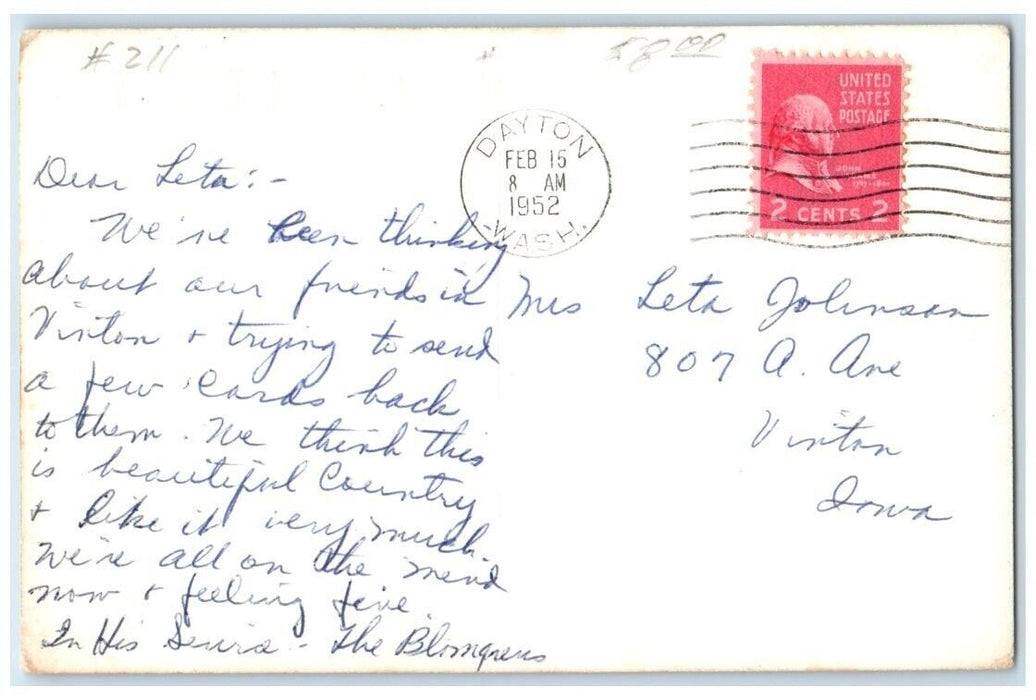 #211
$8.00
UNITED
STATES
POSTAGE
JOHN
2 CENTS 2
DAYTON
FEB 15
8 AM
1952
WASH.
Dear Leta:-
We've been thinking
about our friends in
Vinton + trying to send
a few cards back
to them. We think this
is beautiful Country
+ like it very much.
We're all on the mend
now + feeling fine.
In His - The Blomgrens
Mrs Leta Johnson
807 A. Ave
Vinton
Iowa